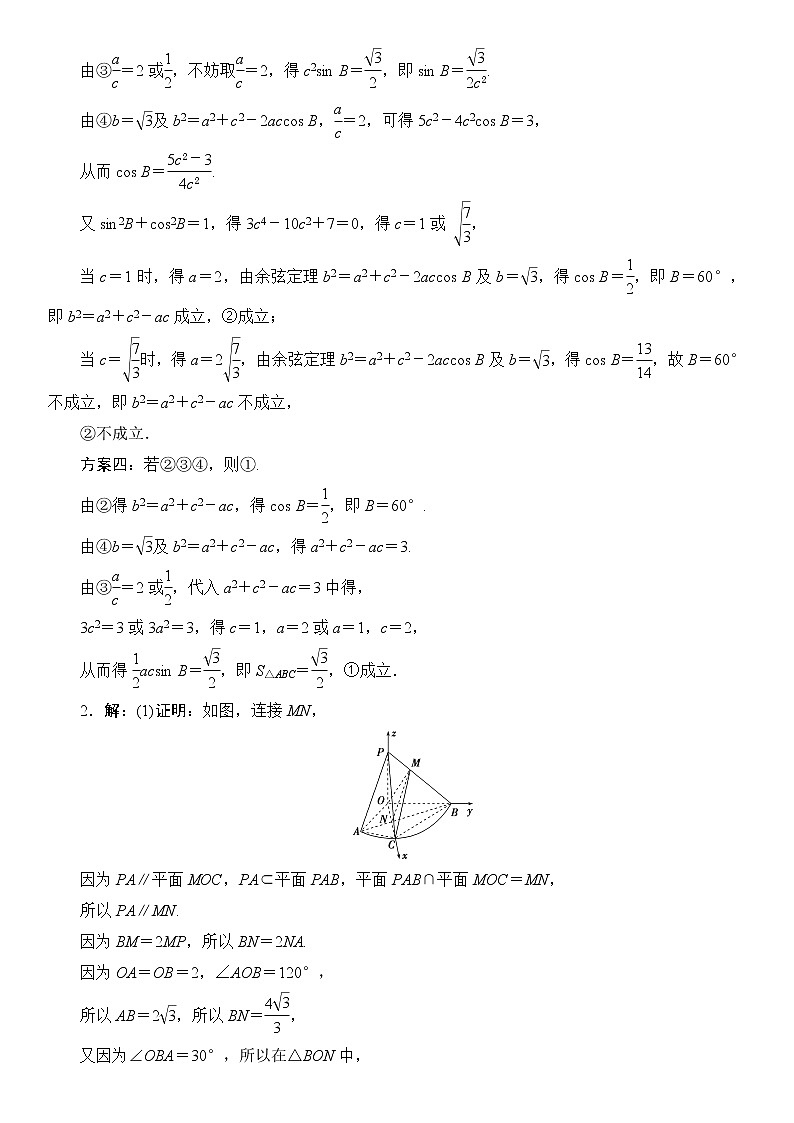 由③a/c=2或1/2，不妨取a/c=2，得c²sin B=√3/2，即sin B=√3/(2c²).
由④b=√3及b²=a²+c²-2accos B，a/c=2，可得5c²-4c²cos B=3，
从而cos B=(5c²-3)/(4c²).
又sin²B+cos²B=1，得3c⁴-10c²+7=0，得c=1或√(7/3)，
当c=1时，得a=2，由余弦定理b²=a²+c²-2accos B及b=√3，得cos B=1/2，即B=60°，
即b²=a²+c²-ac成立，②成立；
当c=√(7/3)时，得a=2√(7/3)，由余弦定理b²=a²+c²-2accos B及b=√3，得cos B=13/14，故B=60°
不成立，即b²=a²+c²-ac不成立，
②不成立．
方案四：若②③④，则①.
由②得b²=a²+c²-ac，得cos B=1/2，即B=60°.
由④b=√3及b²=a²+c²-ac，得a²+c²-ac=3.
由③a/c=2或1/2，代入a²+c²-ac=3中得，
3c²=3或3a²=3，得c=1，a=2或a=1，c=2，
从而得1/2acsin B=√3/2，即S△ABC=√3/2，①成立．
2．解：(1)证明：如图，连接MN，
z
P
M
O
B
y
N
A
C
x
因为PA∥平面MOC，PA⊂平面PAB，平面PAB∩平面MOC=MN，
所以PA∥MN.
因为BM=2MP，所以BN=2NA.
因为OA=OB=2，∠AOB=120°，
所以AB=2√3，所以BN=4√3/3，
又因为∠OBA=30°，所以在△BON中，